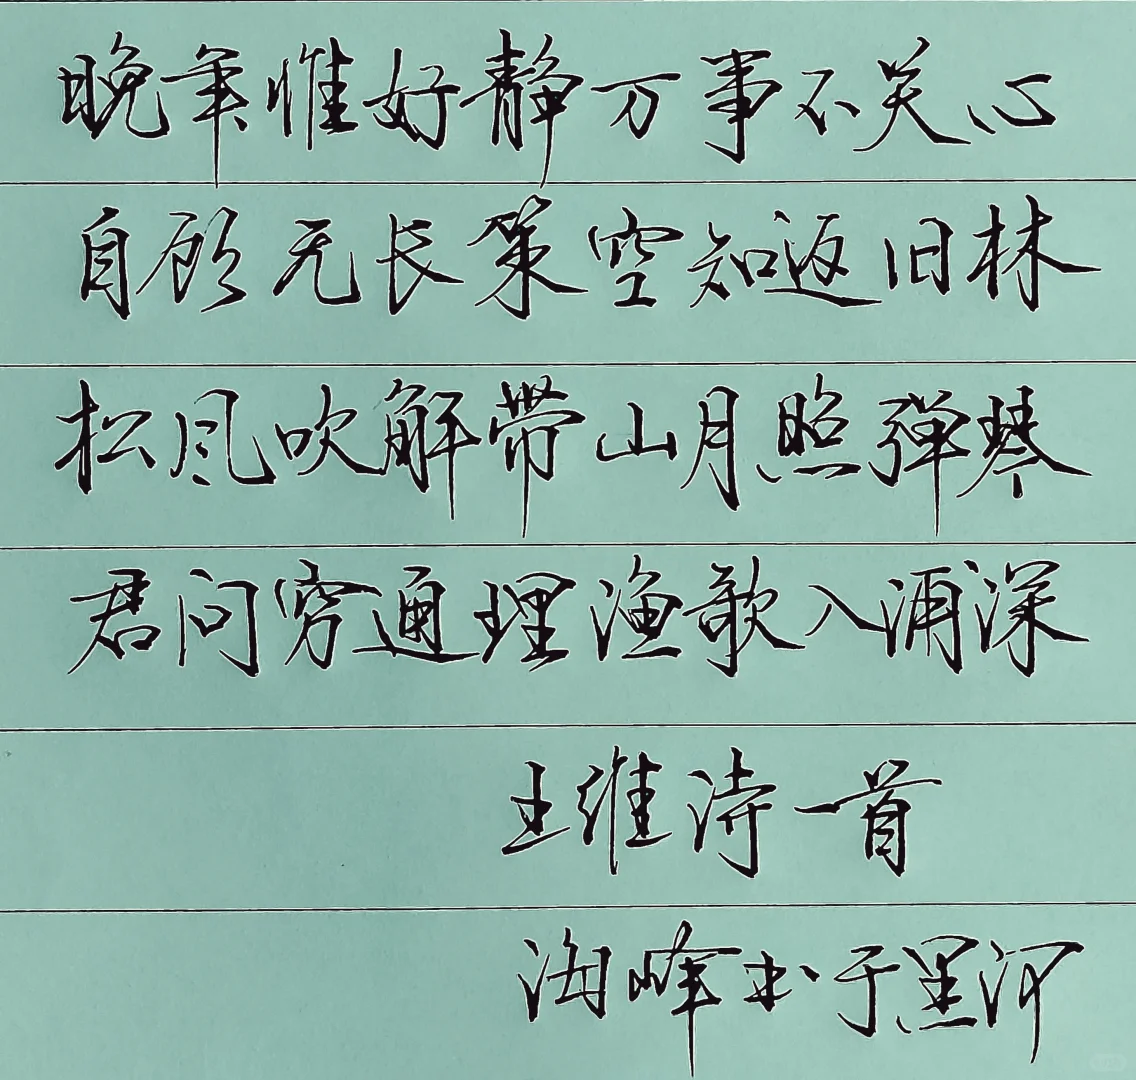 晚年惟好静万事不关心
自顾无长策空知返旧林
松风吹解带山月照弹琴
君问穷通理渔歌入浦深
王维诗一首
海峰书于黑河